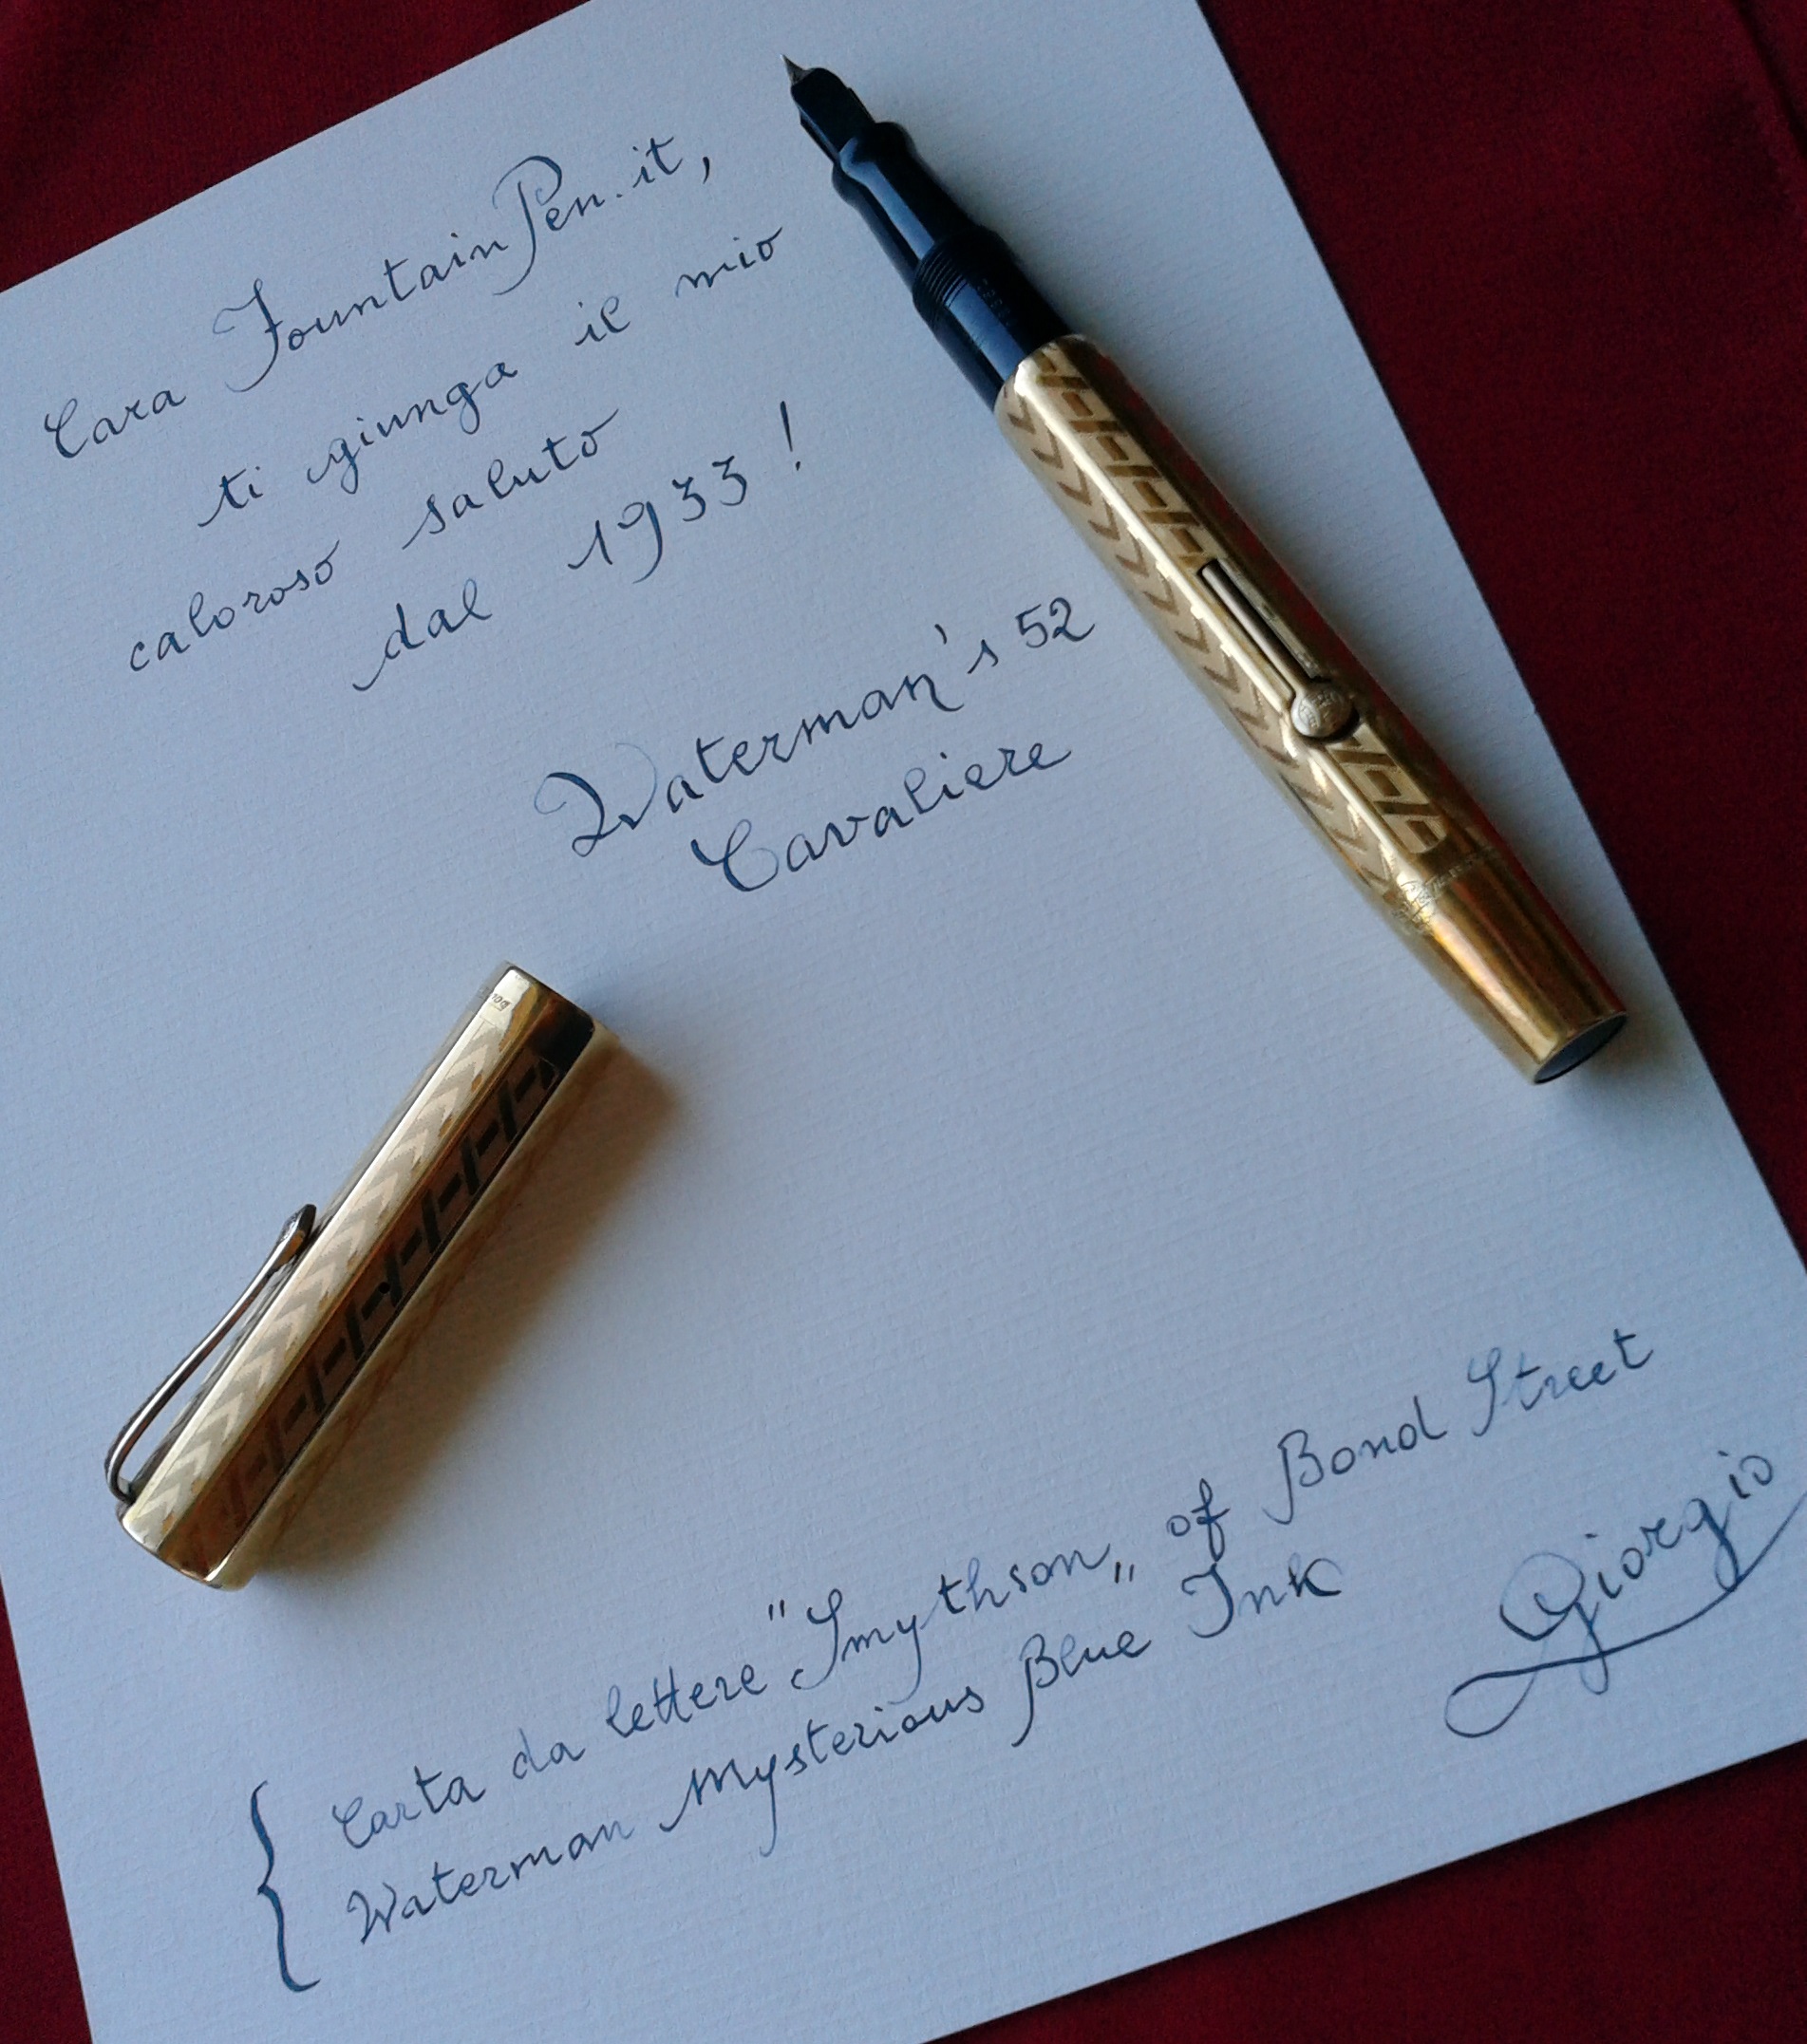 Cara FountainPen.it,
ti giunga il mio
caloroso saluto
dal 1933!
Waterman's 52
Cavaliere
Carta da lettere "Smythson„ of Bond Street
Waterman Mysterious Blue Ink
Giorgio